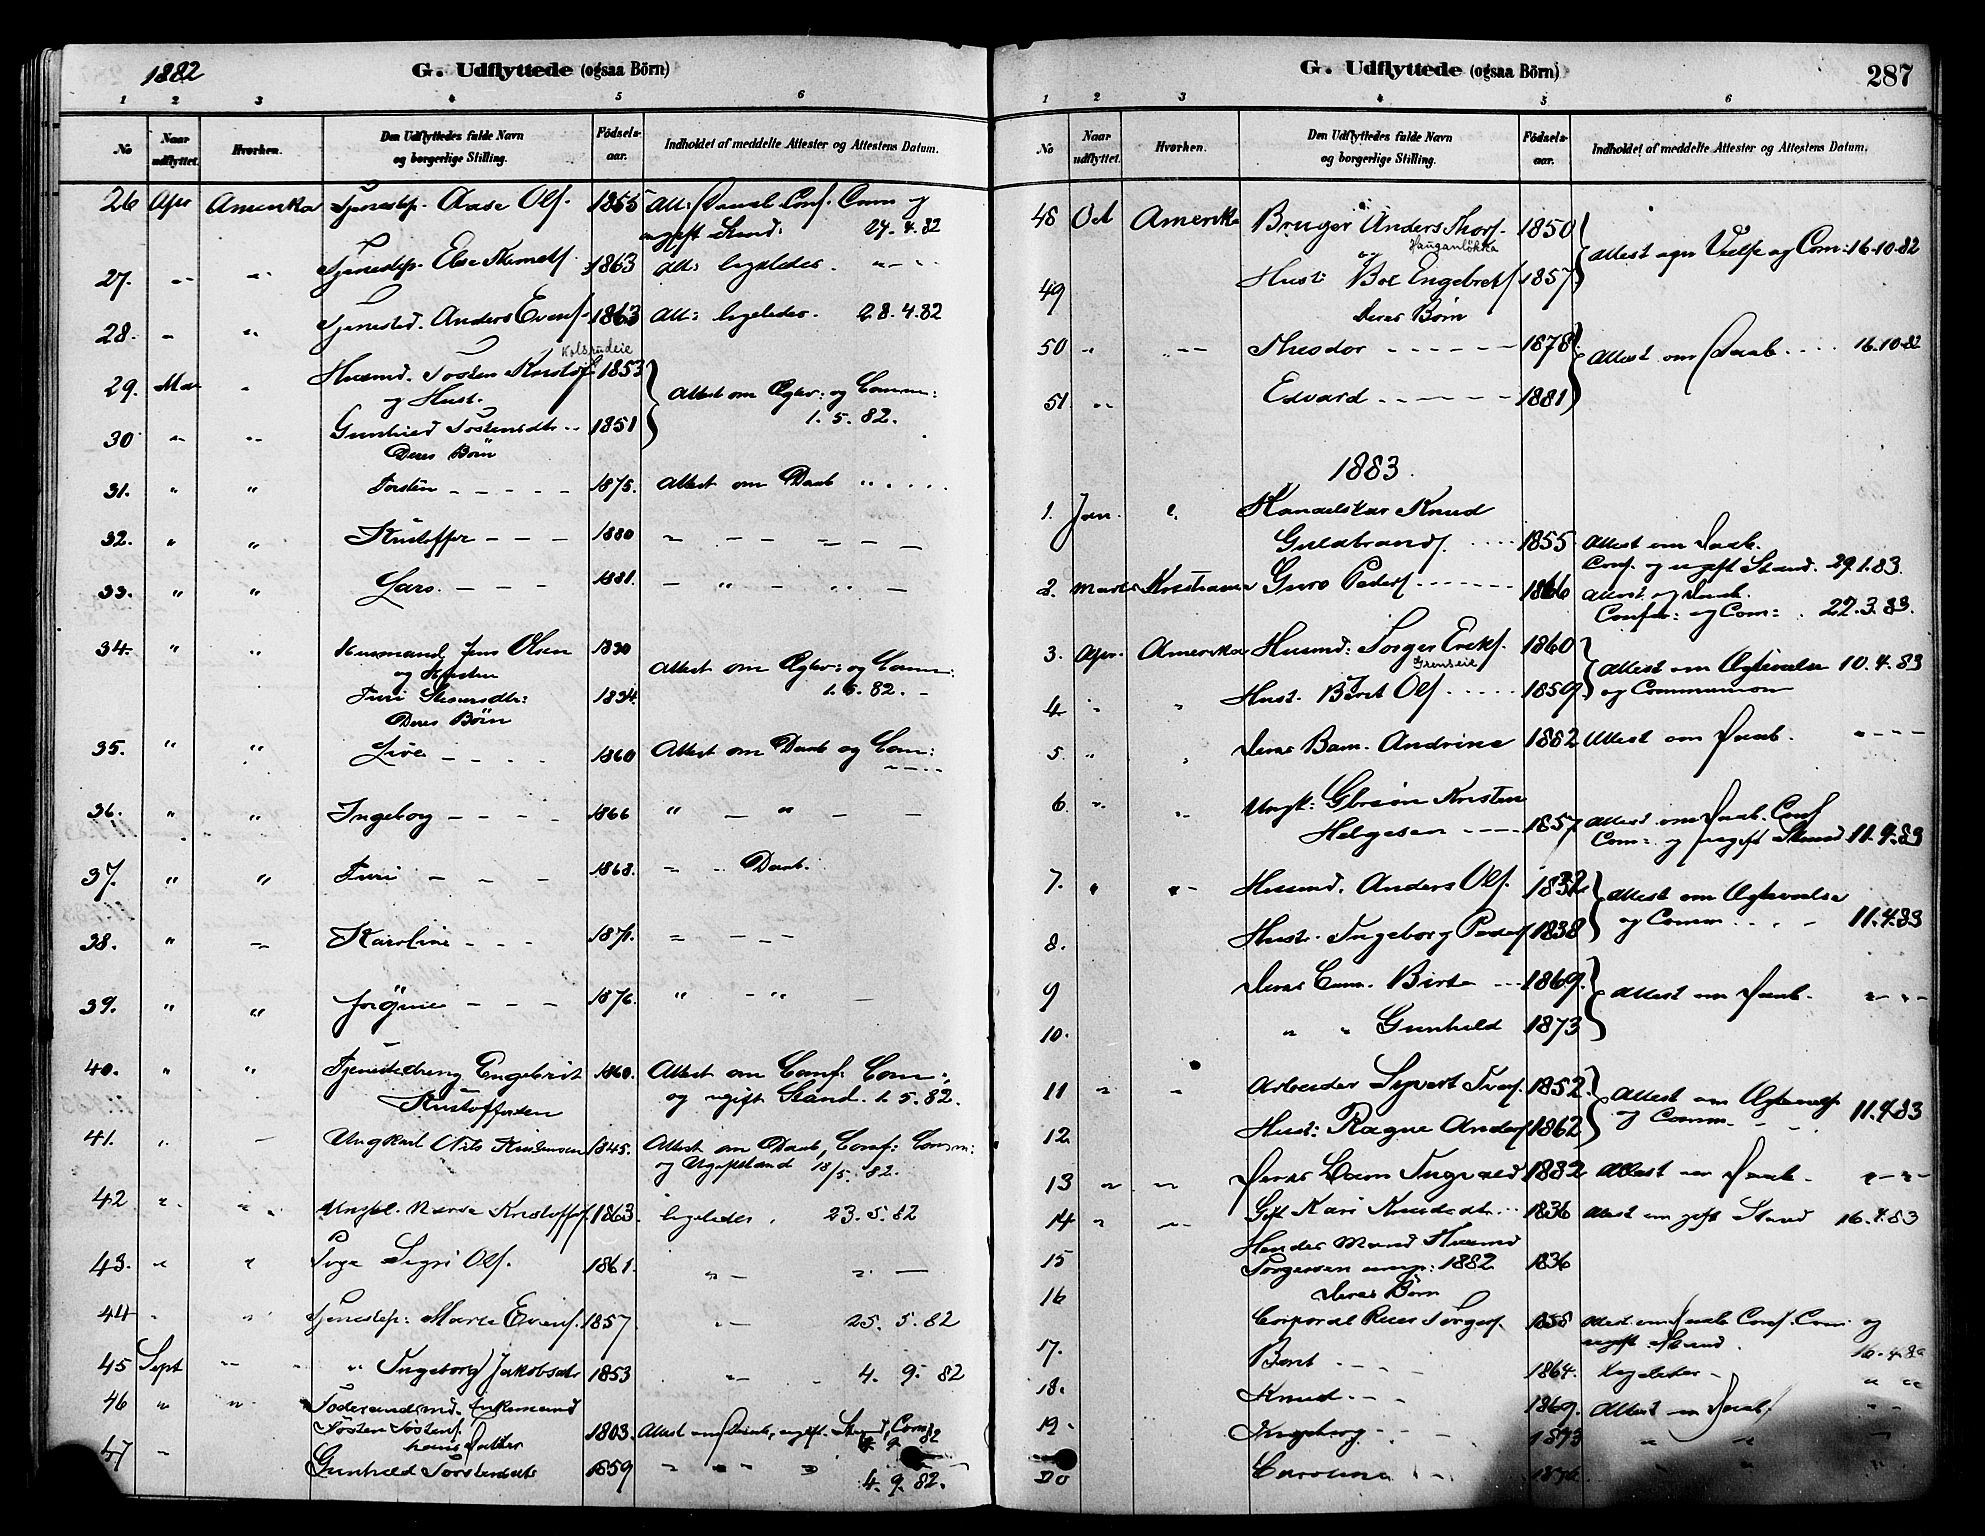 1882
G. Udflyttede (ogsaa Börn)
1 2 3 4 5 6
No
Naar udflyttet.
Hvorhen.
Den Udflyttedes fulde Navn og borgerlige Stilling.
Födsels-aar.
Indholdet af meddelte Attester og Attestens Datum.
26 Apr Amerika Tjenestep. Aase Ols. 1855 Att: Daab Conf. Com og
ugift Stand. 27.4.82
27. " " Tjenestep. Else 1863 Att: ligeledes. " - -
28. " " Tjenested. Anders Evens. 1863 Att: ligeledes. 28.4.82
Kolsrudeie
29. Mai " Husmd. Tosten Kristof. 1853
og Hust.
Attest om Ægtev: og Comm:
1.5.82.
30 " " Gunhild Tostensdtr 1851
Deres Börn
31. " " Torsten - - - - 1875. Attest om Daab " . . . .
32. " " Kristoffer - - - 1880 - - - - -
33. " " Lars. - - - 1881. - " - " -
34. " " Husmand Jens Olsen 1830
og Hustru
Attest om Ægtev: og Comm:
1.5.82. -
Turi 1834.
Deres Börn
35. " " Live - - - - 1860 Attest om Daab og Com:
36. " " Ingeborg - - - - 1866 " - " - -
37. " " Turi - - - 1868. - " Daab.
38. " " Karoline - - - 1871. - - - -
39. " " Jörgine - - - 1876. " - " -
40. " " Tjenestedreng Engebrit 1860. Attest om Conf: Com:,
Kristoffersen og ugift Stand. 1.5.82.
41. " - Ungkarl Nils Kristensen 1845. Attest om Daab, Conf: Comm:
og Ugiftstand 18/5.82.
42 " " Kristoffers. 1863. ligeledes. 23.5.82
43. " " Pige Sigri Ols. 1861. " - " -
44 " " Tjenestep: Marie Evens. 1857 " - 25.5.82
45 Sept " " Ingeborg Jakobsdtr 1853 " - " 4. 9. 82
46 " " Föderaadsmd. Enkemand
Tosten Tostens. 1803. Attest om Daab, ugift. Stand, Com.
hans Datter 4.9.82
47 " Gunhild Torstensdtr 1859 " " " "
4.9.82.
G. Udflyttede (ogsaa Börn)
287
1 2 3 4 5 6
No
Naar udflyttet.
Hvorhen.
Den Udflyttedes fulde Navn og borgerlige Stilling.
Födsels-aar.
Indholdet af meddelte Attester og Attestens Datum.
48 Oct Amerika Bruger Anders Thors. 1850
Hauganlökka
og
Attest om Vielse og Com: 16.10.82
49 Hust: Boe Engebrets. 1857
Deres Börn
50 " " Theodor - - - - - 1878
Attest om Daab . . . . 16.10.82
51 " " Edvard - - - - - 1881
1883.
1. Jan. " Handelskar Knud
Guldbrands. . . . . 1855 Attest om Daab.
Conf. og ugift Stand. 29.1.83.
2. Marts Kristiania Guro Peders. - - - - 1866 Attest og Daab.
Confir: og Com: . 22.3.83.
3. Apr. Amerika Husmd: Torger Eriks. 1860
Grenseie
Attest om Ægtevielse 10.4.83
og Communion
4 " " Hust. Berit Ols. . . . . 1859.
5 " " Deres Barn. Andrine 1882 Attest om Daab. " - - -
6 " " Ungk: Kristen
Helgesen - - - 1857 Attest om Daab. Conf
Com: og ugift Stand 11.4.83
7. " " Husmd. Anders Ols. 1832
Attest om Ægtevielse
og Comm . . . 11.4.83
8. Hustr. Ingeborg Peders. 1838
9 Deres Barn. Birte - - 1869.
Attest om Daab. " - " -
10. " " Gunhild 1873
11 " " Arbeider Syvert Ivers. 1852.
Attest om Ægtevielse
og Comm. 11.4.83
12. Hust: Ragne Anders. 1862
13 " " Deres Barn Ingvald 1882 Attest om Daab. " - " -
14 " " Gift Kari Knudsdtr. 1836 Attest om gift Stand 16.4.83
15 Hendes Mand
Torgersen 1882 1836
16 Deres Börn
Corporal Torgers. 1858 Attest om Daab Conf. Com: og
ugift Stand. 16.4.83
17. Berit - - - 1864. Ligeledes - " "
18. Knud - - - 1869. Attest om Daab. " "
19 Ingeborg - - 1873 " "
20 Caroline - - 1876 " "